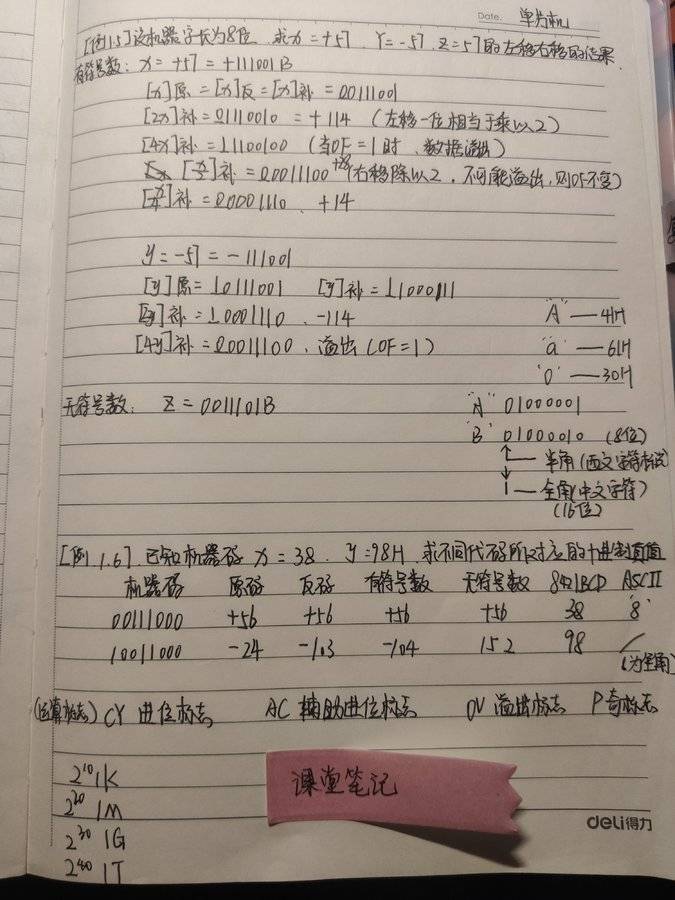 Date. 单片机
[例1.5]设机器字长为8位,求x=+57,Y=-57,Z=57的左移右移的结果.
有符号数: x=+57=+111001B
[x]原=[x]反=[x]补=00111001
[2x]补=01110010=+114 (左移一位相当于乘以2)
[4x]补=11100100 (当OF=1时、数据溢出)
[x/2]补=00011100 +28 (右移除以2,不可能溢出,则OF不变)
[x/4]补=00001110、+14
y=-57=-111001
[y]原=10111001 [y]补=11000111
[2y]补=10001110、-114
[4y]补=00011100、溢出(OF=1)
"A" —41H
"a" —61H
"0" —30H
无符号数: Z=0011101B
"A" 01000001
"B" 01000010 (8位)
半角(西文字符标识)
1 — 全角(中文字符)
(16位)
[例1.6]已知机器码 x=38、y=98H,求不同代码所对应的十进制真值
机器码 原码 反码 有符号数 无符号数 8421BCD ASCII
00111000 +56 +56 +56 +56 38 "8"
10011000 -24 -103 -104 152 98 /
(为全角)
(运算标志) CY 进位标志 AC 辅助进位标志 OV 溢出标志 P奇标志
2^10 1K
2^20 1M
2^30 1G
2^40 1T
课堂笔记
deli得力